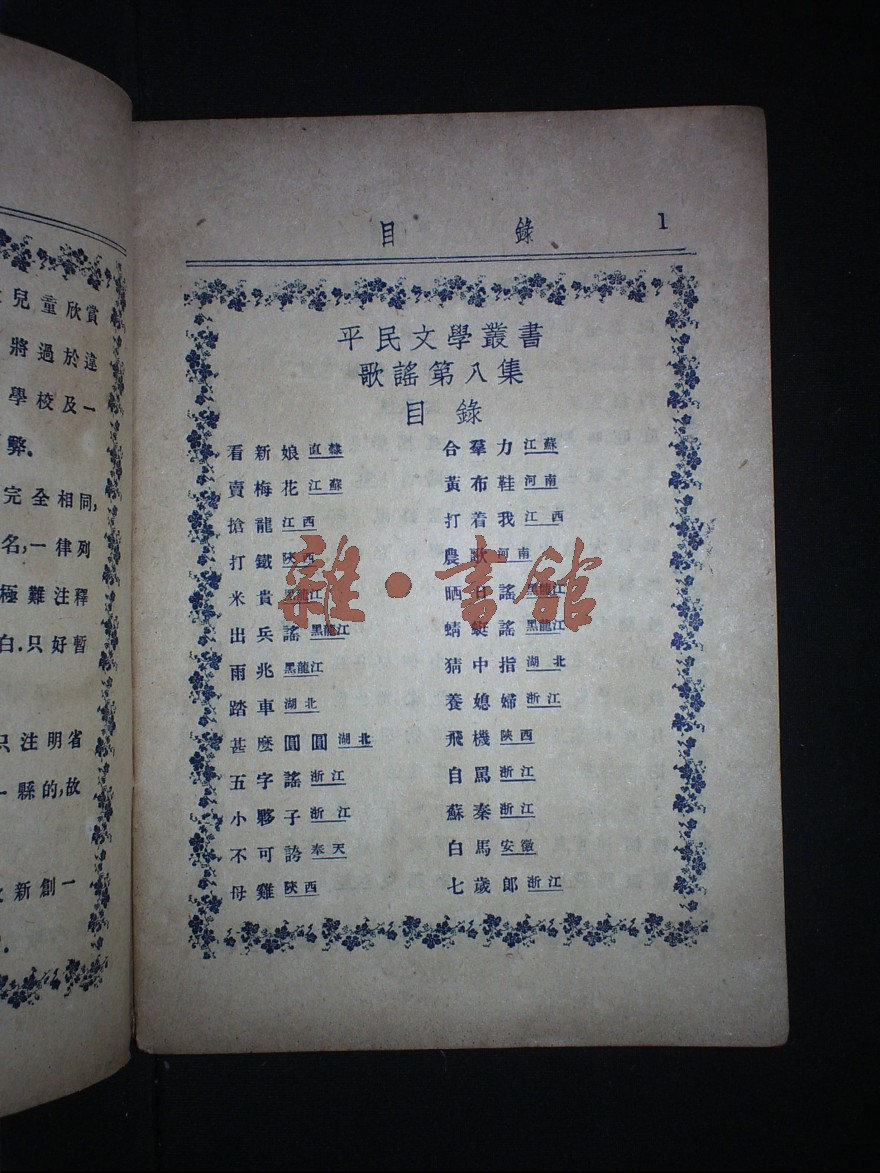 兒童欣賞
將過於違
學校及一
弊。
完全相同,
名,一律列
極難注釋
白.只好暫
只注明省
一縣的,故
新創一
目錄 1
平民文學叢書
歌謠第八集
目錄
看新娘 直隸
賣梅花 江蘇
搶龍 江西
打鐵 陝西
米貴 黑龍江
出兵謠 黑龍江
雨兆 黑龍江
踏車 湖北
甚麽圓圓 湖北
五字謠 浙江
小夥子 浙江
不可誇 奉天
母雞 陝西
合羣力 江蘇
黃布鞋 河南
打着我 江西
農歌 河南
晒日謠 黑龍江
蜻蜓謠 黑龍江
猜中指 湖北
養媳婦 浙江
飛機 陝西
自罵 浙江
蘇秦 浙江
白馬 安徽
七歲郎 浙江
雜·書館